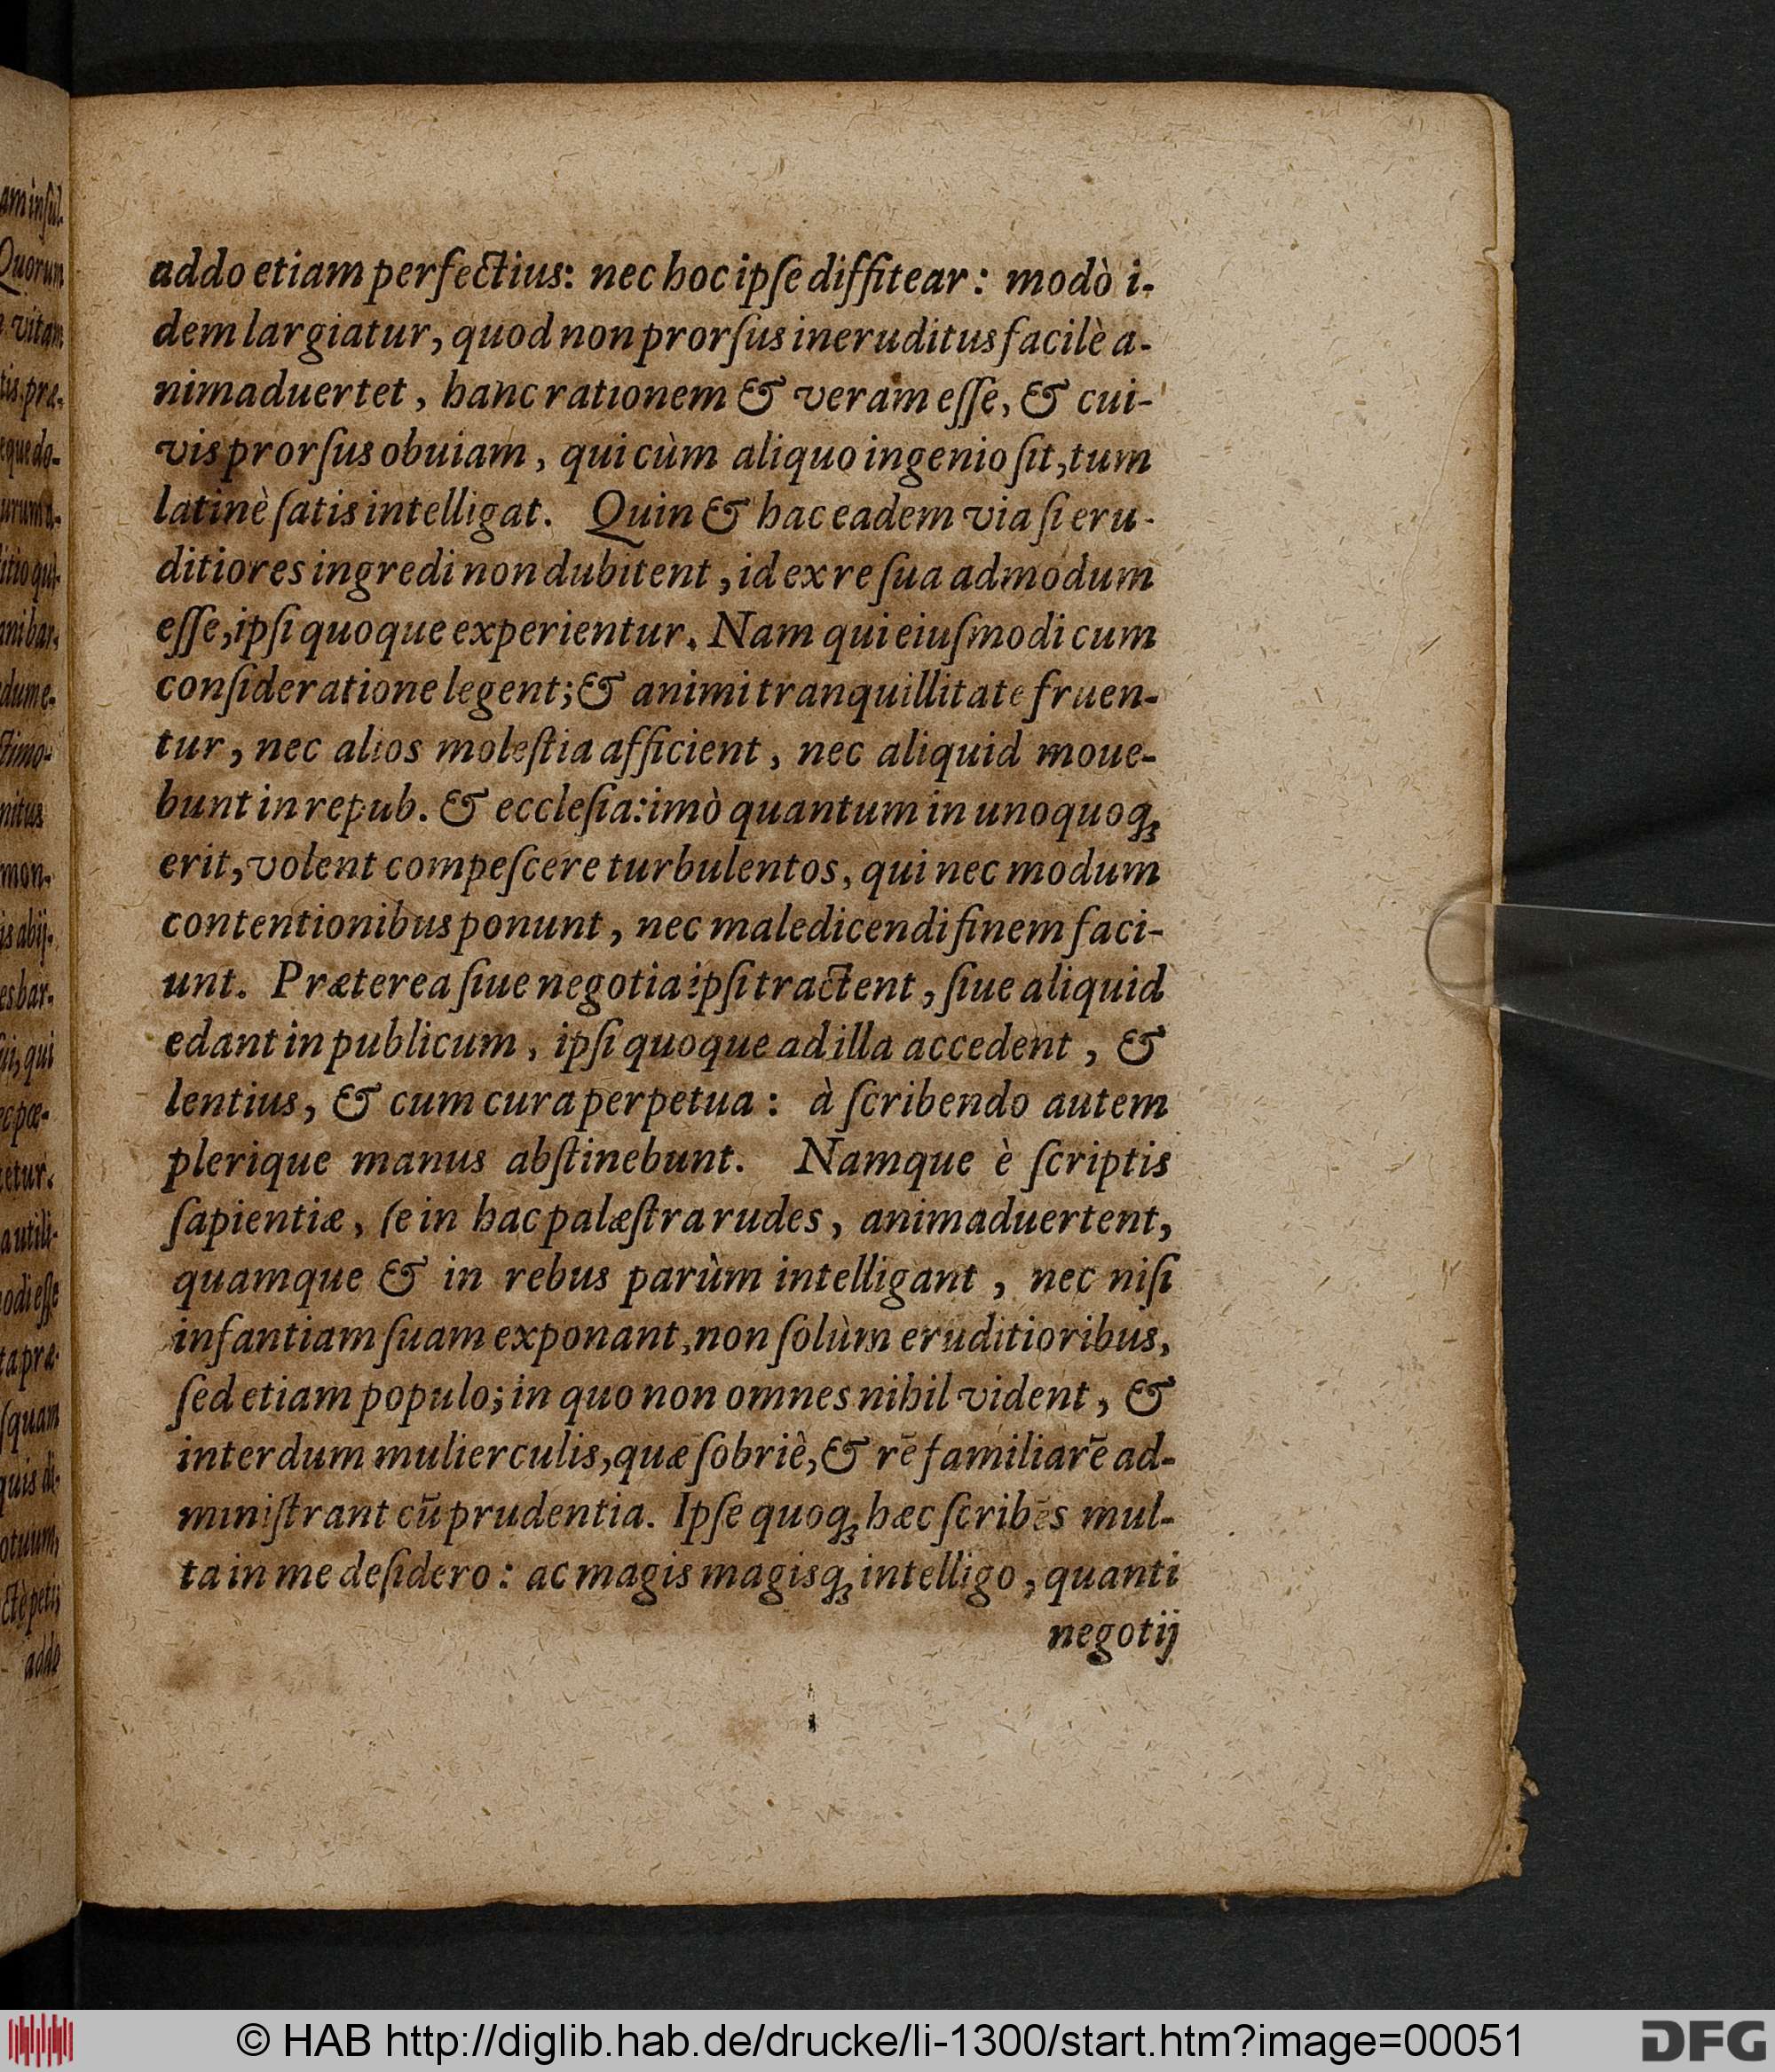 addo etiam perfectius: nec hoc ipſe diffitear: modò i-
dem largiatur, quod non prorſus ineruditus facilè a-
nimaduertet, hanc rationem & veram eſſe, & cui-
vis prorſus obuiam, qui cùm aliquo ingenio ſit, tum
latinè ſatis intelligat. Quin & hac eadem via ſi eru-
ditiores ingredi non dubitent, id ex re ſua admodum
eſſe, ipſi quoque experientur. Nam qui eiuſmodi cum
conſideratione legent; & animi tranquillitate fruen-
tur, nec alios moleſtia afficient, nec aliquid moue-
bunt in repub. & eccleſia: imò quantum in unoquoq́;
erit, volent compeſcere turbulentos, qui nec modum
contentionibus ponunt, nec maledicendi finem faci-
unt. Præterea ſiue negotia ipſi tractent, ſiue aliquid
edant in publicum, ipſi quoque ad illa accedent, &
lentius, & cum cura perpetua: à ſcribendo autem
plerique manus abſtinebunt. Namque è ſcriptis
ſapientiæ, ſe in hac palæſtra rudes, animaduertent,
quamque & in rebus parùm intelligant, nec niſi
infantiam ſuam exponant, non ſolùm eruditioribus,
ſed etiam populo; in quo non omnes nihil vident, &
interdum mulierculis, quæ ſobriè, & rē familiarē ad-
miniſtrant cū prudentia. Ipſe quoq; hæc ſcribēs mul-
ta in me deſidero: ac magis magisq; intelligo, quanti
negotij
am inſul-
Quorum
vitam
tis præ-
eque do-
itio qui-
ani bar-
dum e-
ſtimo-
nitus
mon-
is abij-
es bar-
ui, qui
etur.
a utili-
odi eſſe
ta præ-
(quam
quis di-
otuum,
ctè petij
addo
© HAB http://diglib.hab.de/drucke/li-1300/start.htm?image=00051
DFG